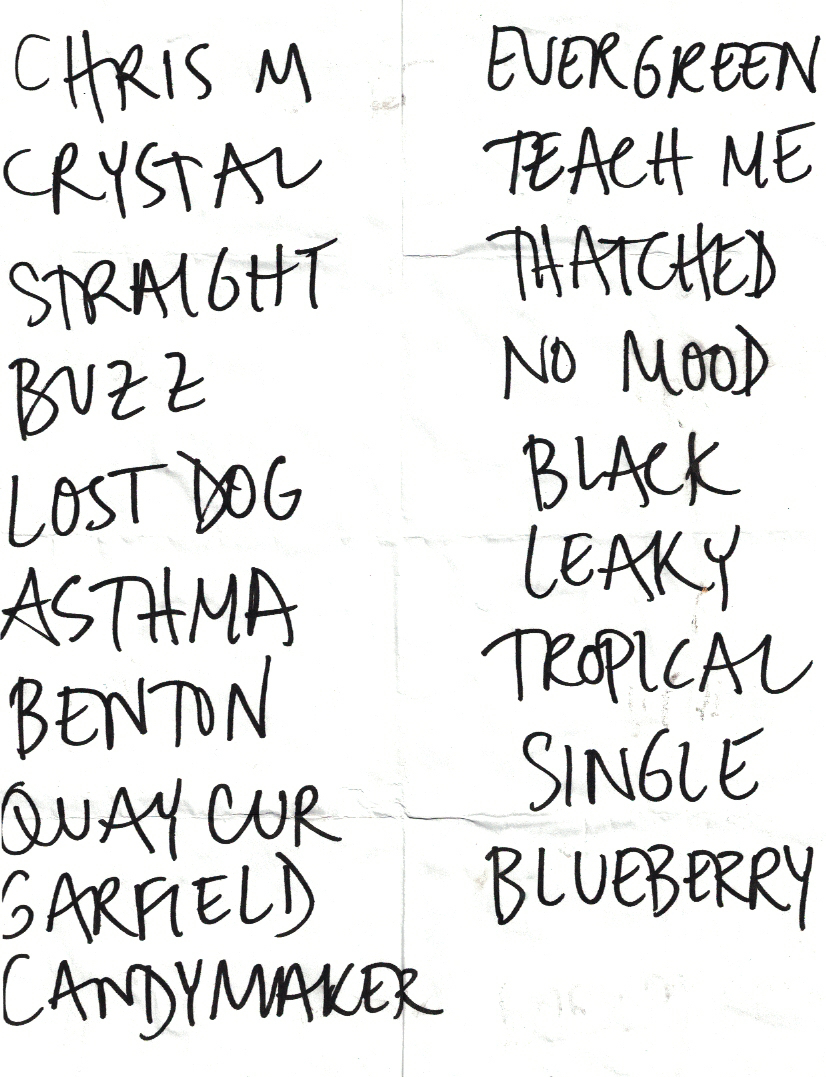 CHRIS M
CRYSTAL
STRAIGHT
BUZZ
LOST DOG
ASTHMA
BENTON
QUAY CUR
GARFIELD
CANDYMAKER
EVERGREEN
TEACH ME
THATCHED
NO MOOD
BLACK
LEAKY
TROPICAL
SINGLE
BLUEBERRY